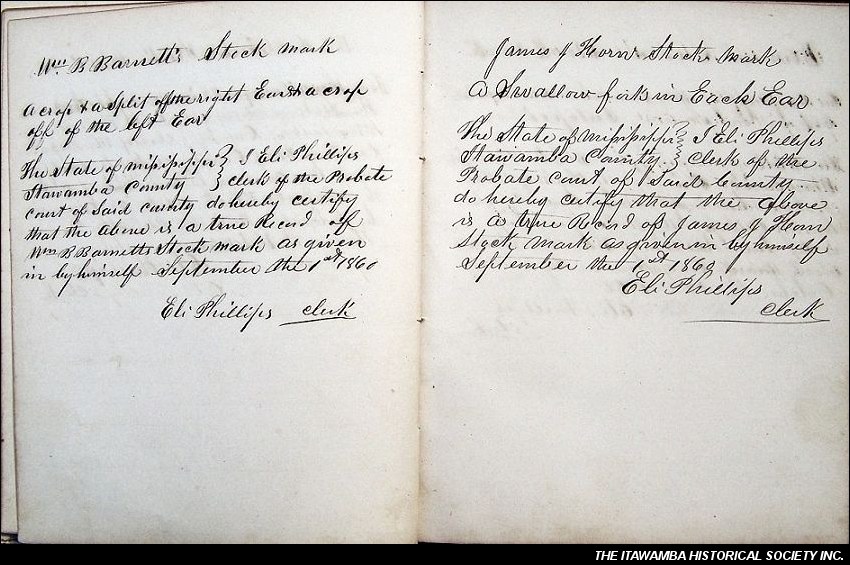 Wm. B Barnett's Stock mark
A crop & a Split off the right Ear & a crop
off of the left Ear
The State of Mississippi } I Eli Phillips
Itawamba County } clerk of the Probate
court of Said county do hereby certify
that the above is a true Record of
Wm B Barnetts Stock mark as given
in by himself September the 1st 1860
Eli Phillips clerk
James J Horn Stock Mark
A Swallow-fork in Each Ear
The State of Mississippi } I Eli Phillips
Itawamba County. } clerk of the
Probate court of Said County
do hereby certify that the above
is a true Record of James J Horn
Stock mark as given in by himself
September the 1st 1860
Eli Phillips
clerk
THE ITAWAMBA HISTORICAL SOCIETY INC.